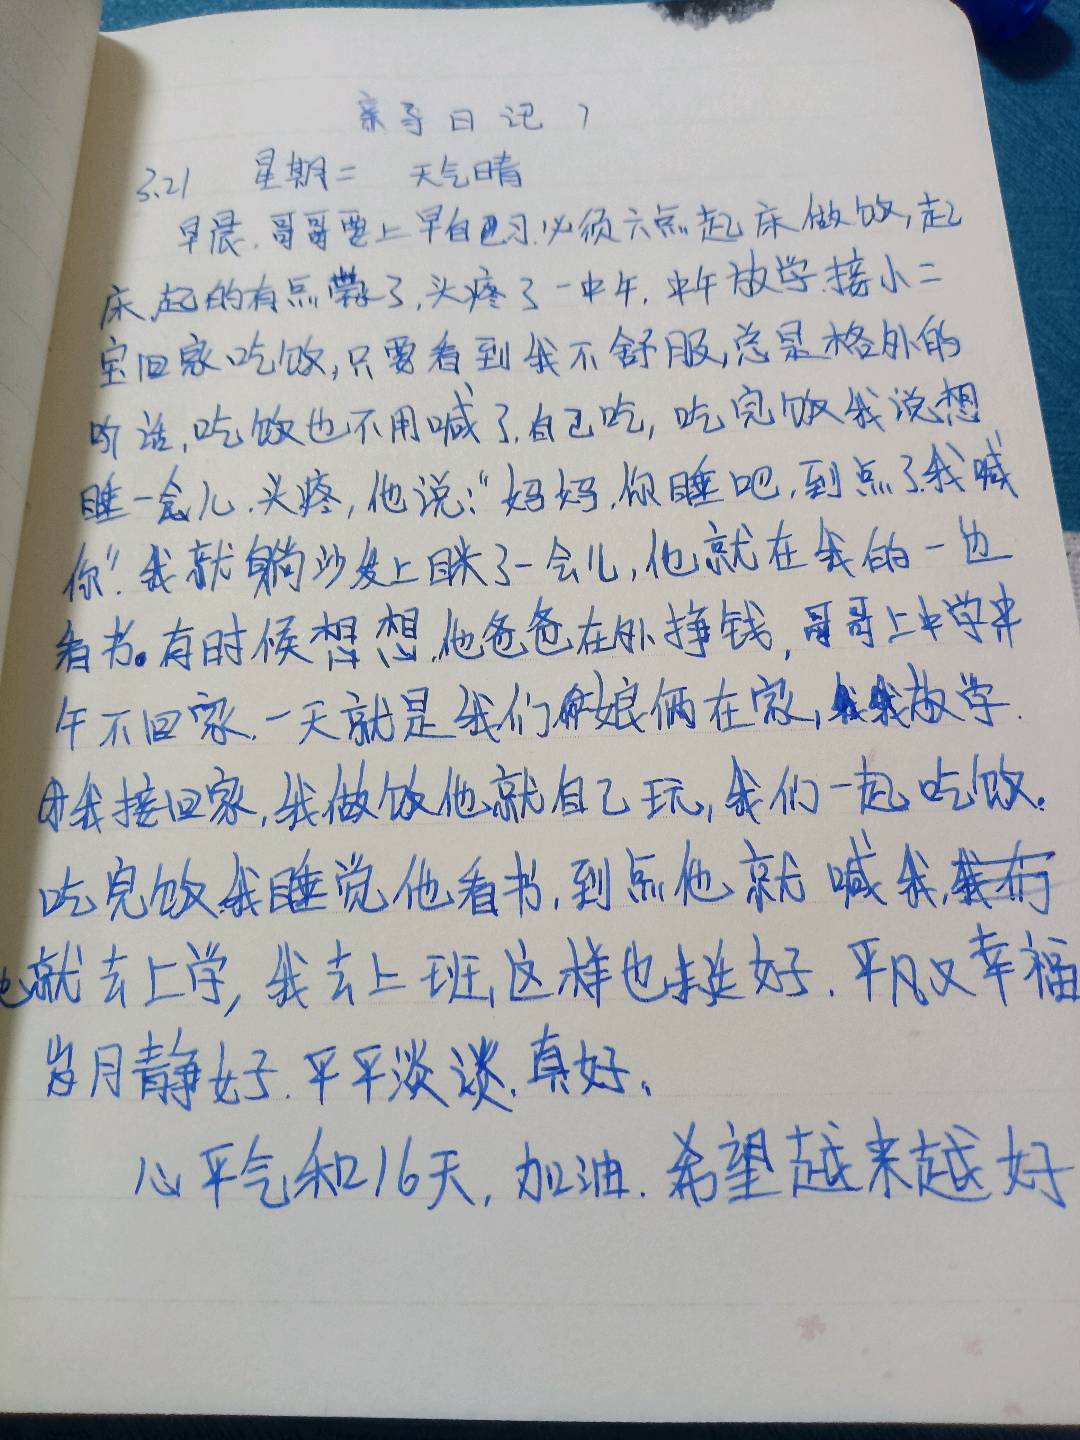 亲子日记7
3.21 星期二 天气晴
早晨.哥哥要上早自习.必须六点起床做饭,起
床起的有点晕了,头疼了一中午.中午放学.接小二
宝回家吃饭,只要看到我不舒服,总是格外的
听话,吃饭也不用喊了.自己吃,吃完饭我说想
睡一会儿.头疼,他说:“妈妈.你睡吧.到点了.我喊
你”.我就躺沙发上眯了一会儿,他就在我的一边
看书。有时候想想.他爸爸在外挣钱,哥哥上中学中
午不回家.一天就是我们娘俩在家,放学.
我接回家,我做饭他就自己玩,我们一起吃饭.
吃完饭我睡觉他看书.到点他就喊我,
他就去上学,我去上班,这样也挺好.平凡又幸福
岁月静好.平平淡谈.真好.
心平气和16天,加油.希望越来越好